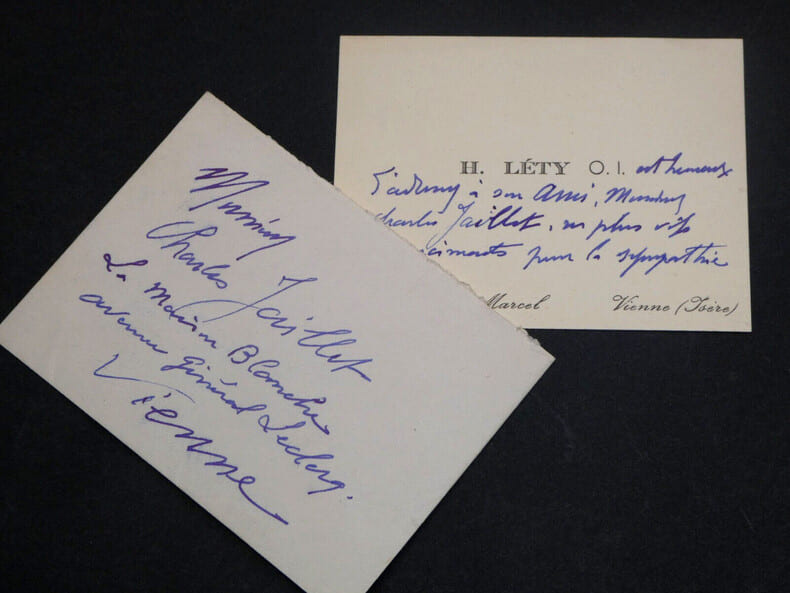 Monsieur
Charles Jaillet
La Maison Blanche
avenue général Leclerc.
Vienne
H. LÉTY O. I. est heureux
d'adresser à son Ami, Monsieur
Charles Jaillet, ses plus vifs
ciments pour la sympathie
Marcel Vienne (Isère)